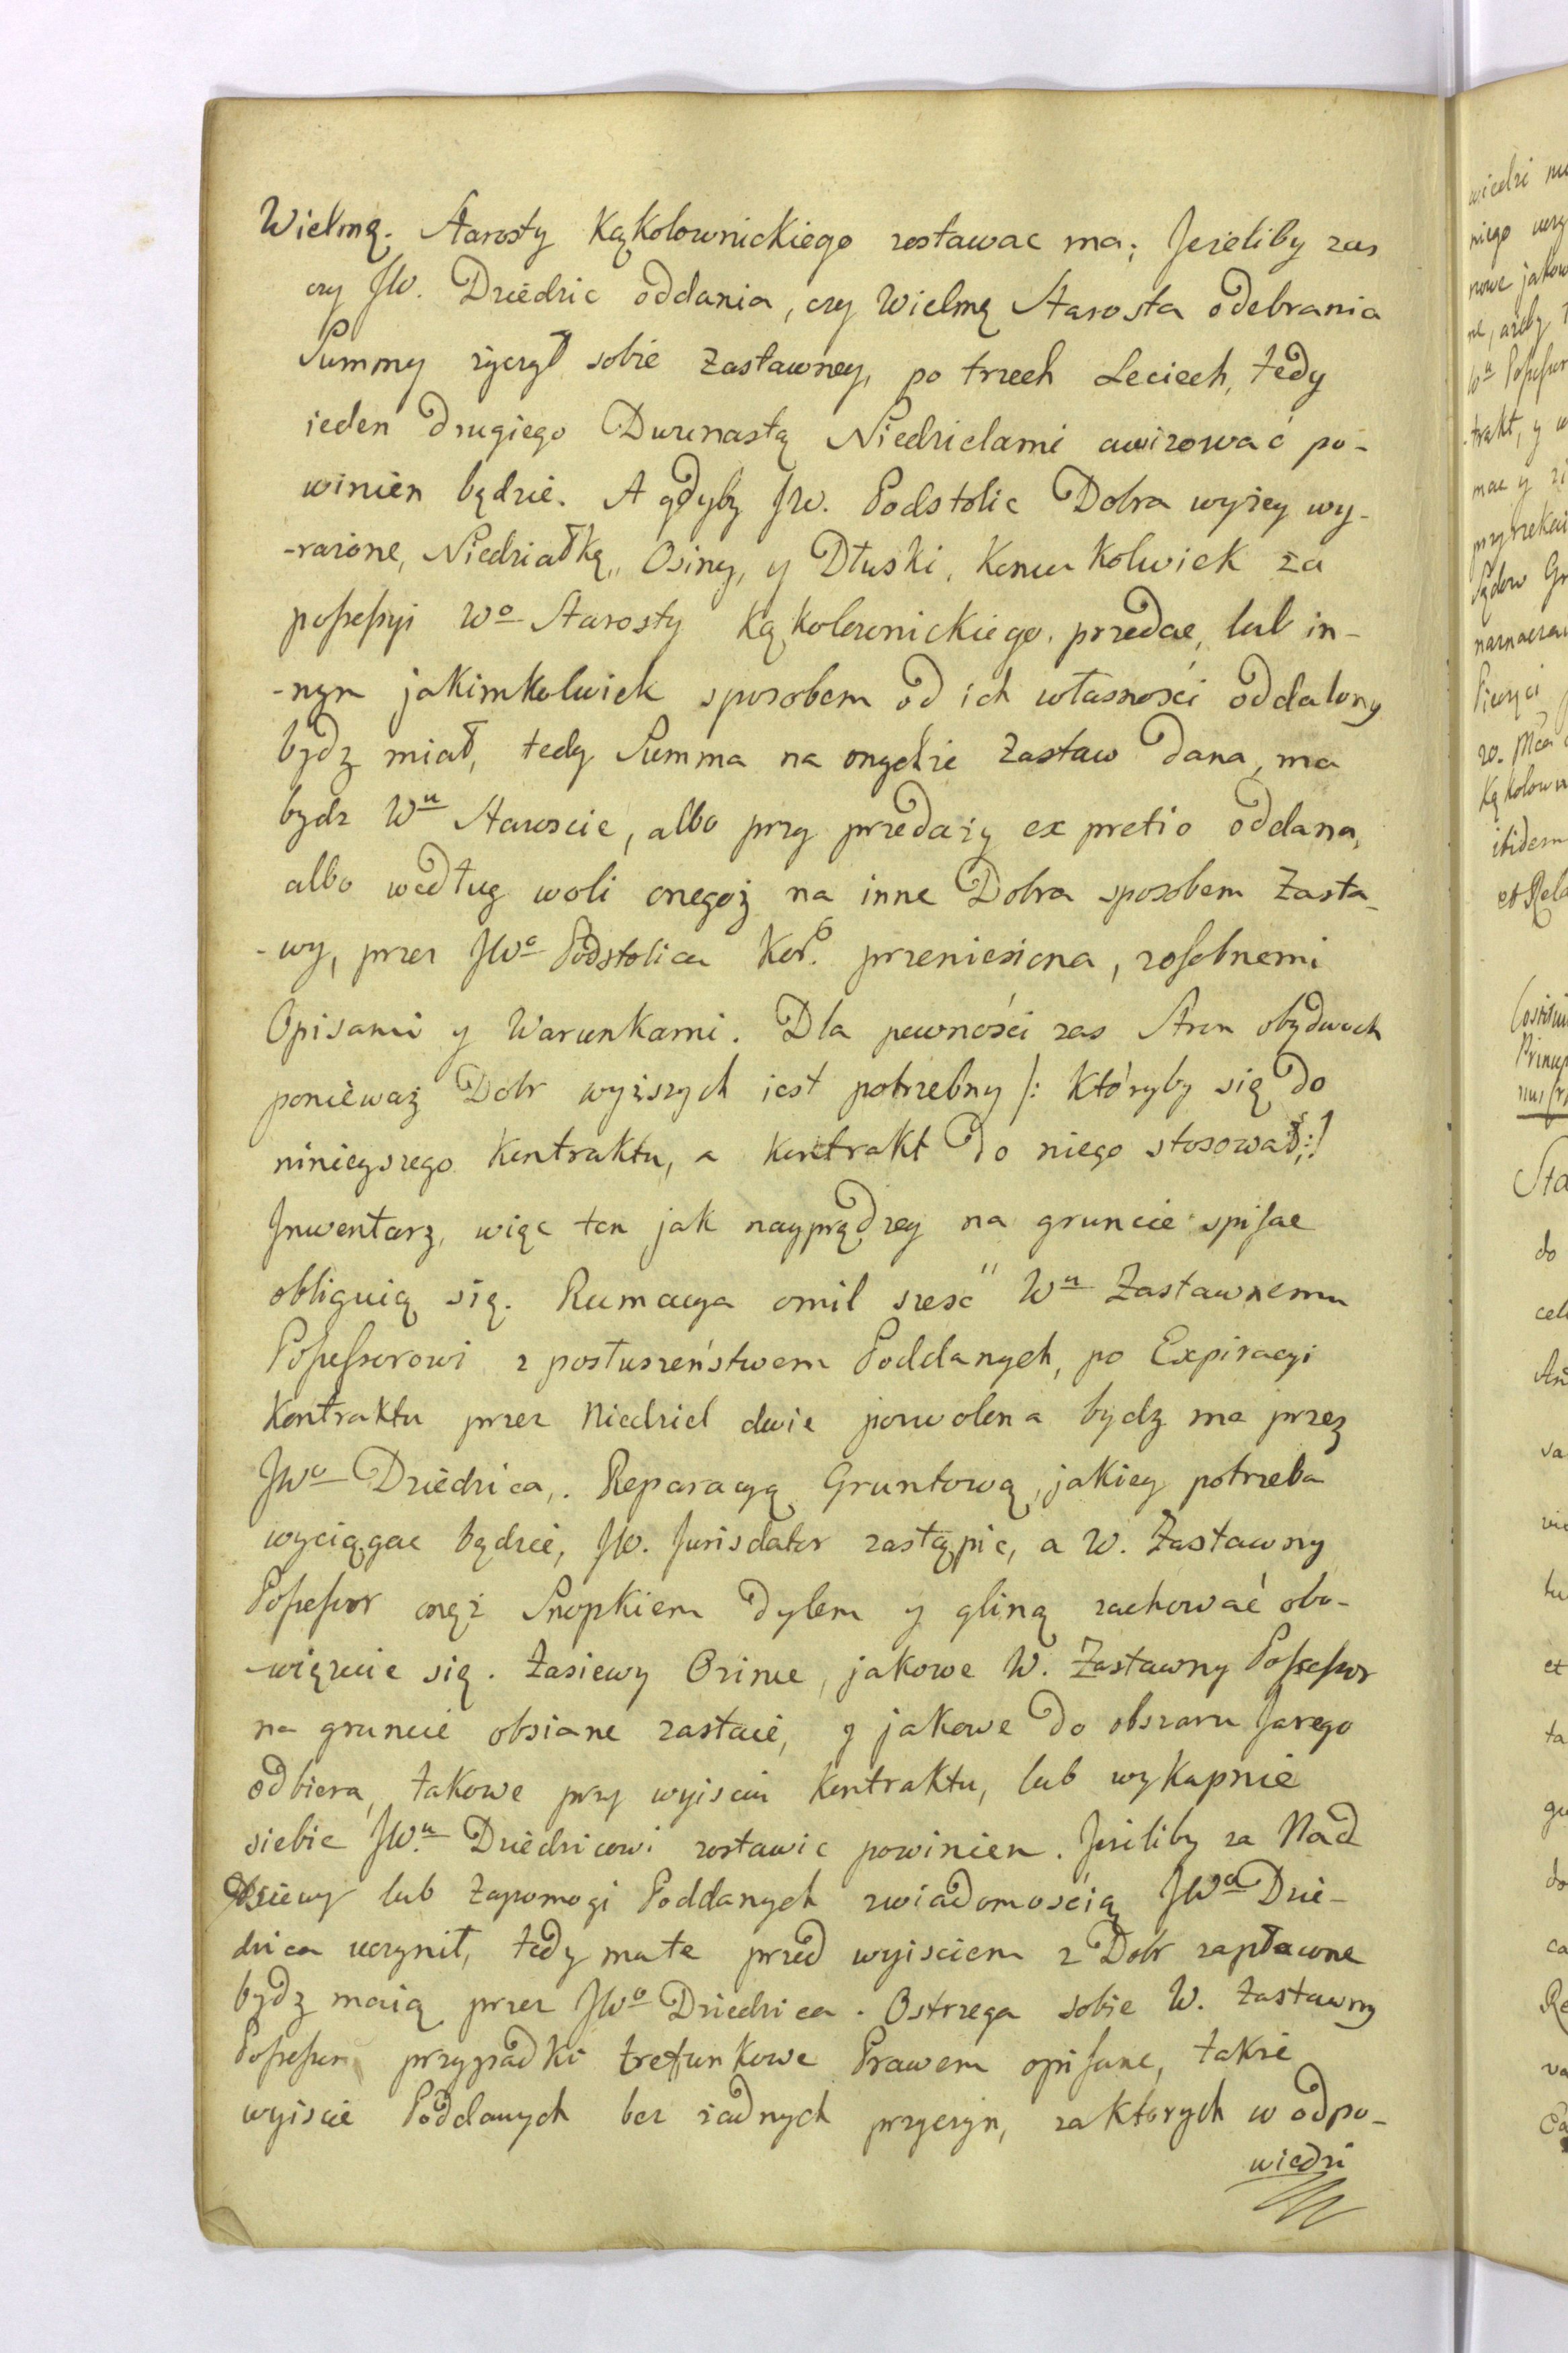 Wielmą. Starosty Kąkolownickiego zostawac ma; Jeżeliby zas
czy JW. Dziedzic oddania, czy Wielmą Starosta odebrania
Summy życzył sobie Zastawney, po trzech Leciech, tedy
ieden drugiego Dwunastą Niedzielami awizować po-
winien będzie. A gdyby JW. Podstolic Dobra wyżey wy-
-rażone, Niedziałkę, Osiny, y Dłuski, Komukolwiek za
possessyi Wo Starosty Kąkolownickiego, przedac, lub in-
-nym jakimkolwiek sposobem od ich własności oddalony
bydz miał, tedy Summa na onychże zastaw dana, ma
bydz Wu Staroscie, albo przy przedaży ex pretio oddana,
albo według woli onegoż na inne Dobra sposobem Zasta-
-wy, przez JWo Podstolica Kor. przeniesiona, zosobnemi
Opisami y Warunkami. Dla pewności zas Stron obydwuch
ponieważ Dobr wyższych iest potrzebny /: Któryby się do
ninieyszego Kontraktu, a Kontrakt do niego stosował :/
Inwentarz, więc ten jak nayprędzey na gruncie spisac
obliguią się. Rumacya omil szesc Wu Zastawnemu
Possessorowi z posłuszeństwem Poddanych, po Expiracyi
Kontraktu przez Niedziel dwie pozwolona bydz ma przez
JWo Dziedzica,. Reparacyą Gruntową, jakiey potrzeba
wyciągac będzie, JW. Jurisdator zastąpic, a W. Zastawny
Possessor onęż Snopkiem dylem y gliną zachować obo-
-więzuie się. Zasiewy Ozime, jakowe W. Zastawny Possessor
na gruncie obsiane zastaie, y jakowe do obszaru Jarego
odbiera, takowe przy wyisciu Kontraktu, lub wzkapnie
siebie JWu Dziedzicowi zostawic powinien. Jeżeliby za Nad
Dsiewy lub Zapomogi Poddanych zwiadomoscią JWo Dzie-
dzica uczynił, tedy mate przed wyisciem z Dobr zapłacone
bydz maią przez JWo Dziedzica. Ostrzega sobie W. Zastawny
Possessor przypadki treffunkowe Prawem opisane, takze
wyiscie Poddanych bez żadnych przyczyn, za ktorych w odpo-
wiedzi